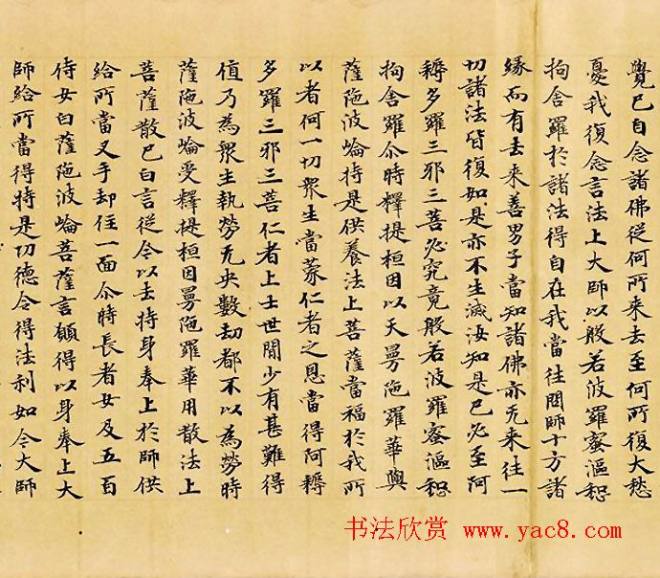 覺已自念諸佛從何所来去至何所復大愁
憂我復念言法上大師以般若波羅蜜漚惒
拘舍羅於諸法得自在我當往問師十方諸
緣而有去来善男子當知諸佛亦无来往一
切諸法皆復如是亦不生滅汝知是已必至阿
耨多羅三邪三菩必究竟般若波羅蜜漚惒
拘舍羅尒時釋提桓因以天曼陁羅華與
薩陁波崘持是供養法上菩薩當福於我所
以者何一切衆生當蒙仁者之恩當得阿耨
多羅三邪三菩仁者上士世間少有甚難得
值乃為衆生執勞无央數劫都不以為勞時
薩陁波崘受釋提桓因曼陁羅華用散法上
菩薩散已白言從今以去持身奉上於師供
給所當叉手却住一面尒時長者女及五百
侍女白薩陁波崘菩薩言願得以身奉上大
師給所當得持是功德令得法利如令大師
书法欣赏 www.yac8.com